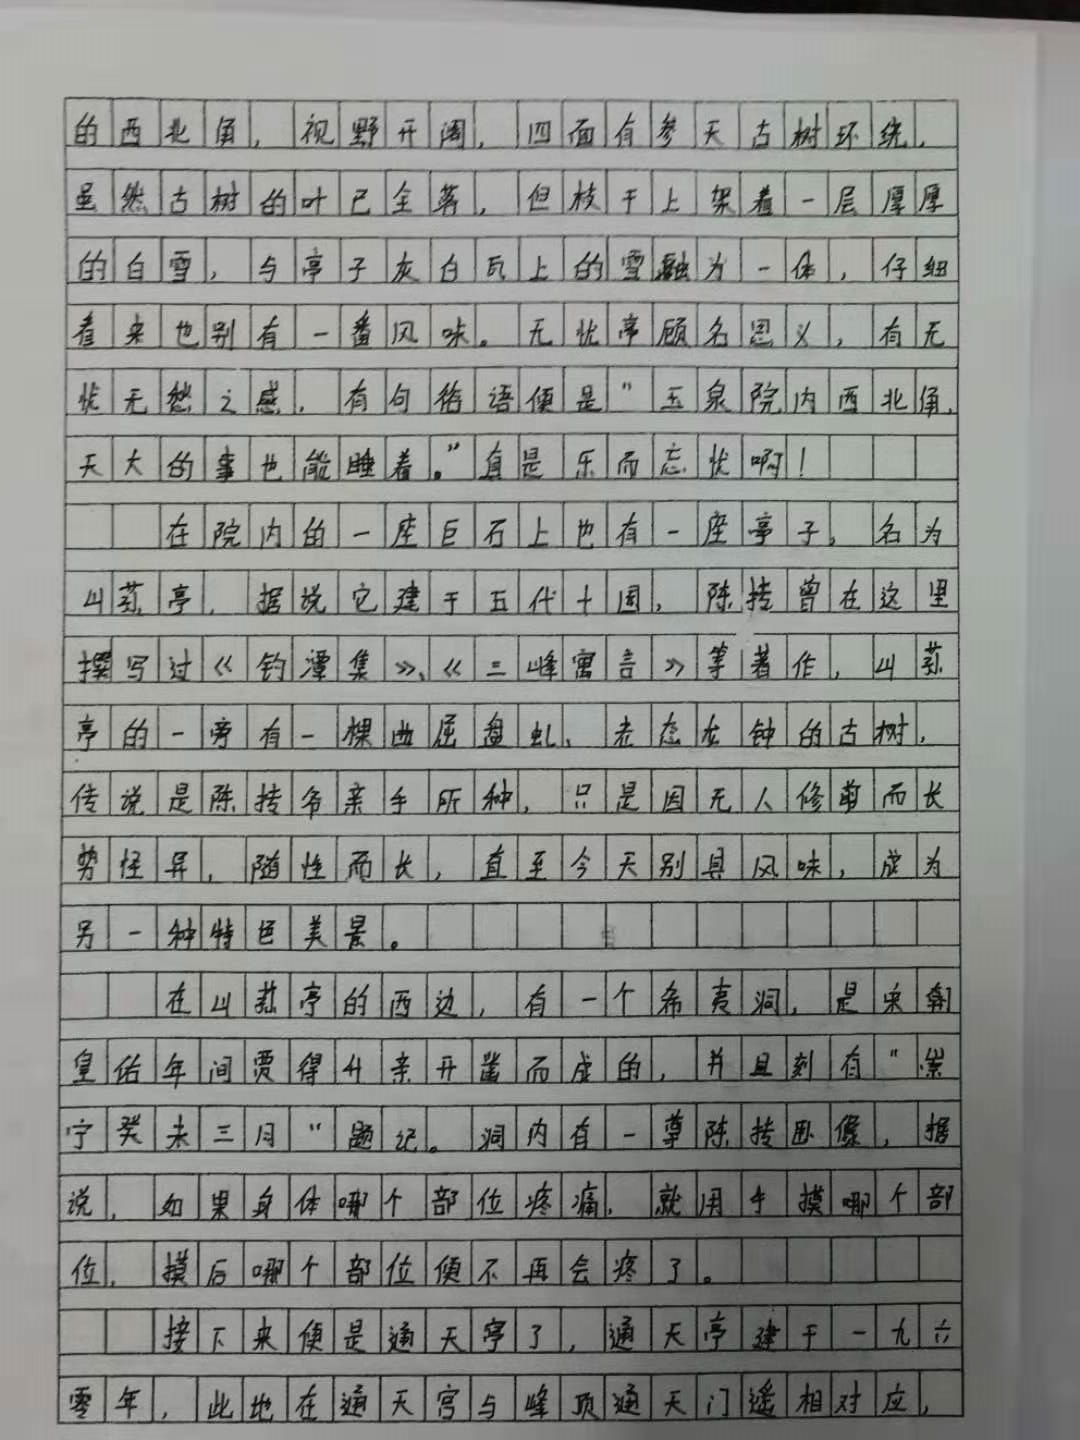 的西北角，视野开阔，四面有参天古树环绕，
虽然古树的叶已全落，但枝干上架着一层厚厚
的白雪，与亭子灰白瓦上的雪融为一体，仔细
看来也别有一番风味。无忧亭顾名思义，有无
忧无愁之感，有句俗语便是“玉泉院内西北角，
天大的事也能睡着。”真是乐而忘忧啊！
在院内的一座巨石上也有一座亭子，名为
山荪亭，据说它建于五代十国，陈抟曾在这里
撰写过《钓潭集》、《三峰寓言》等著作，山荪
亭的一旁有一棵曲屈盘虬、老态龙钟的古树，
传说是陈抟爷亲手所种，只是因无人修剪而长
势怪异，随性而长，直至今天别具风味，成为
另一种特色美景。
在山荪亭的西边，有一个希夷洞，是宋朝
皇佑年间贾得升亲开凿而成的，并且刻有“崇
宁癸未三月”题记。洞内有一尊陈抟卧像，据
说，如果身体哪个部位疼痛，就用手摸哪个部
位，摸后哪个部位便不再会疼了。
接下来便是通天亭了，通天亭建于一九六
零年，此地在通天宫与峰顶通天门遥相对应，